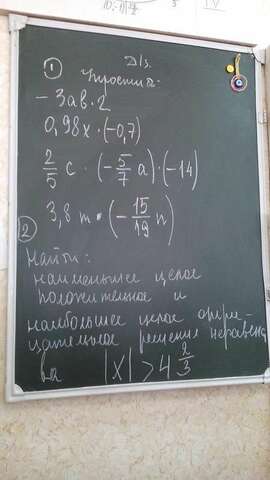 D/з.
① Упрости:
- 3ав · 2
0,98x · (-0,7)
2/5 c · (-5/7 a) · (-14)
3,8 m · (-15/19 n)
② Найти:
наименьшее целое
положительное и
наибольшее целое отри-
цательное решения неравенс
ва |x| > 4 2/3